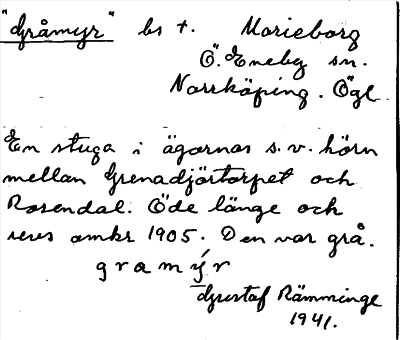 "Gråmyr" bs t. Marieborg
Ö. Eneby sn.
Norrköping. Ögl.
En stuga i ägornas s.v. hörn
mellan Grenadjörtorpet och
Rosendal. Öde länge och
revs omkr 1905. Den var grå.
gramýr
Gustaf Rämminge
1941.